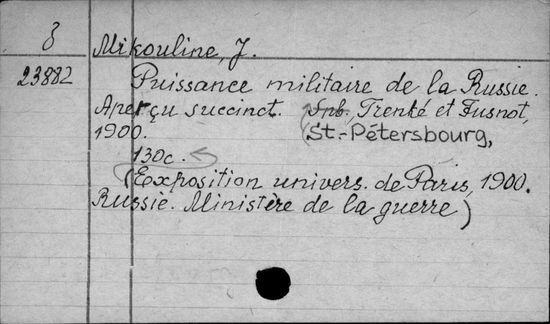 8
Mikouline, J.
23882
Puissance militaire de la Russie.
Aperçu succinct. Spb., Trenké et Fusnot,
1900. St.-Pétersbourg,
130c.
(Exposition univers. de Paris, 1900.
Russie. Ministère de la guerre)